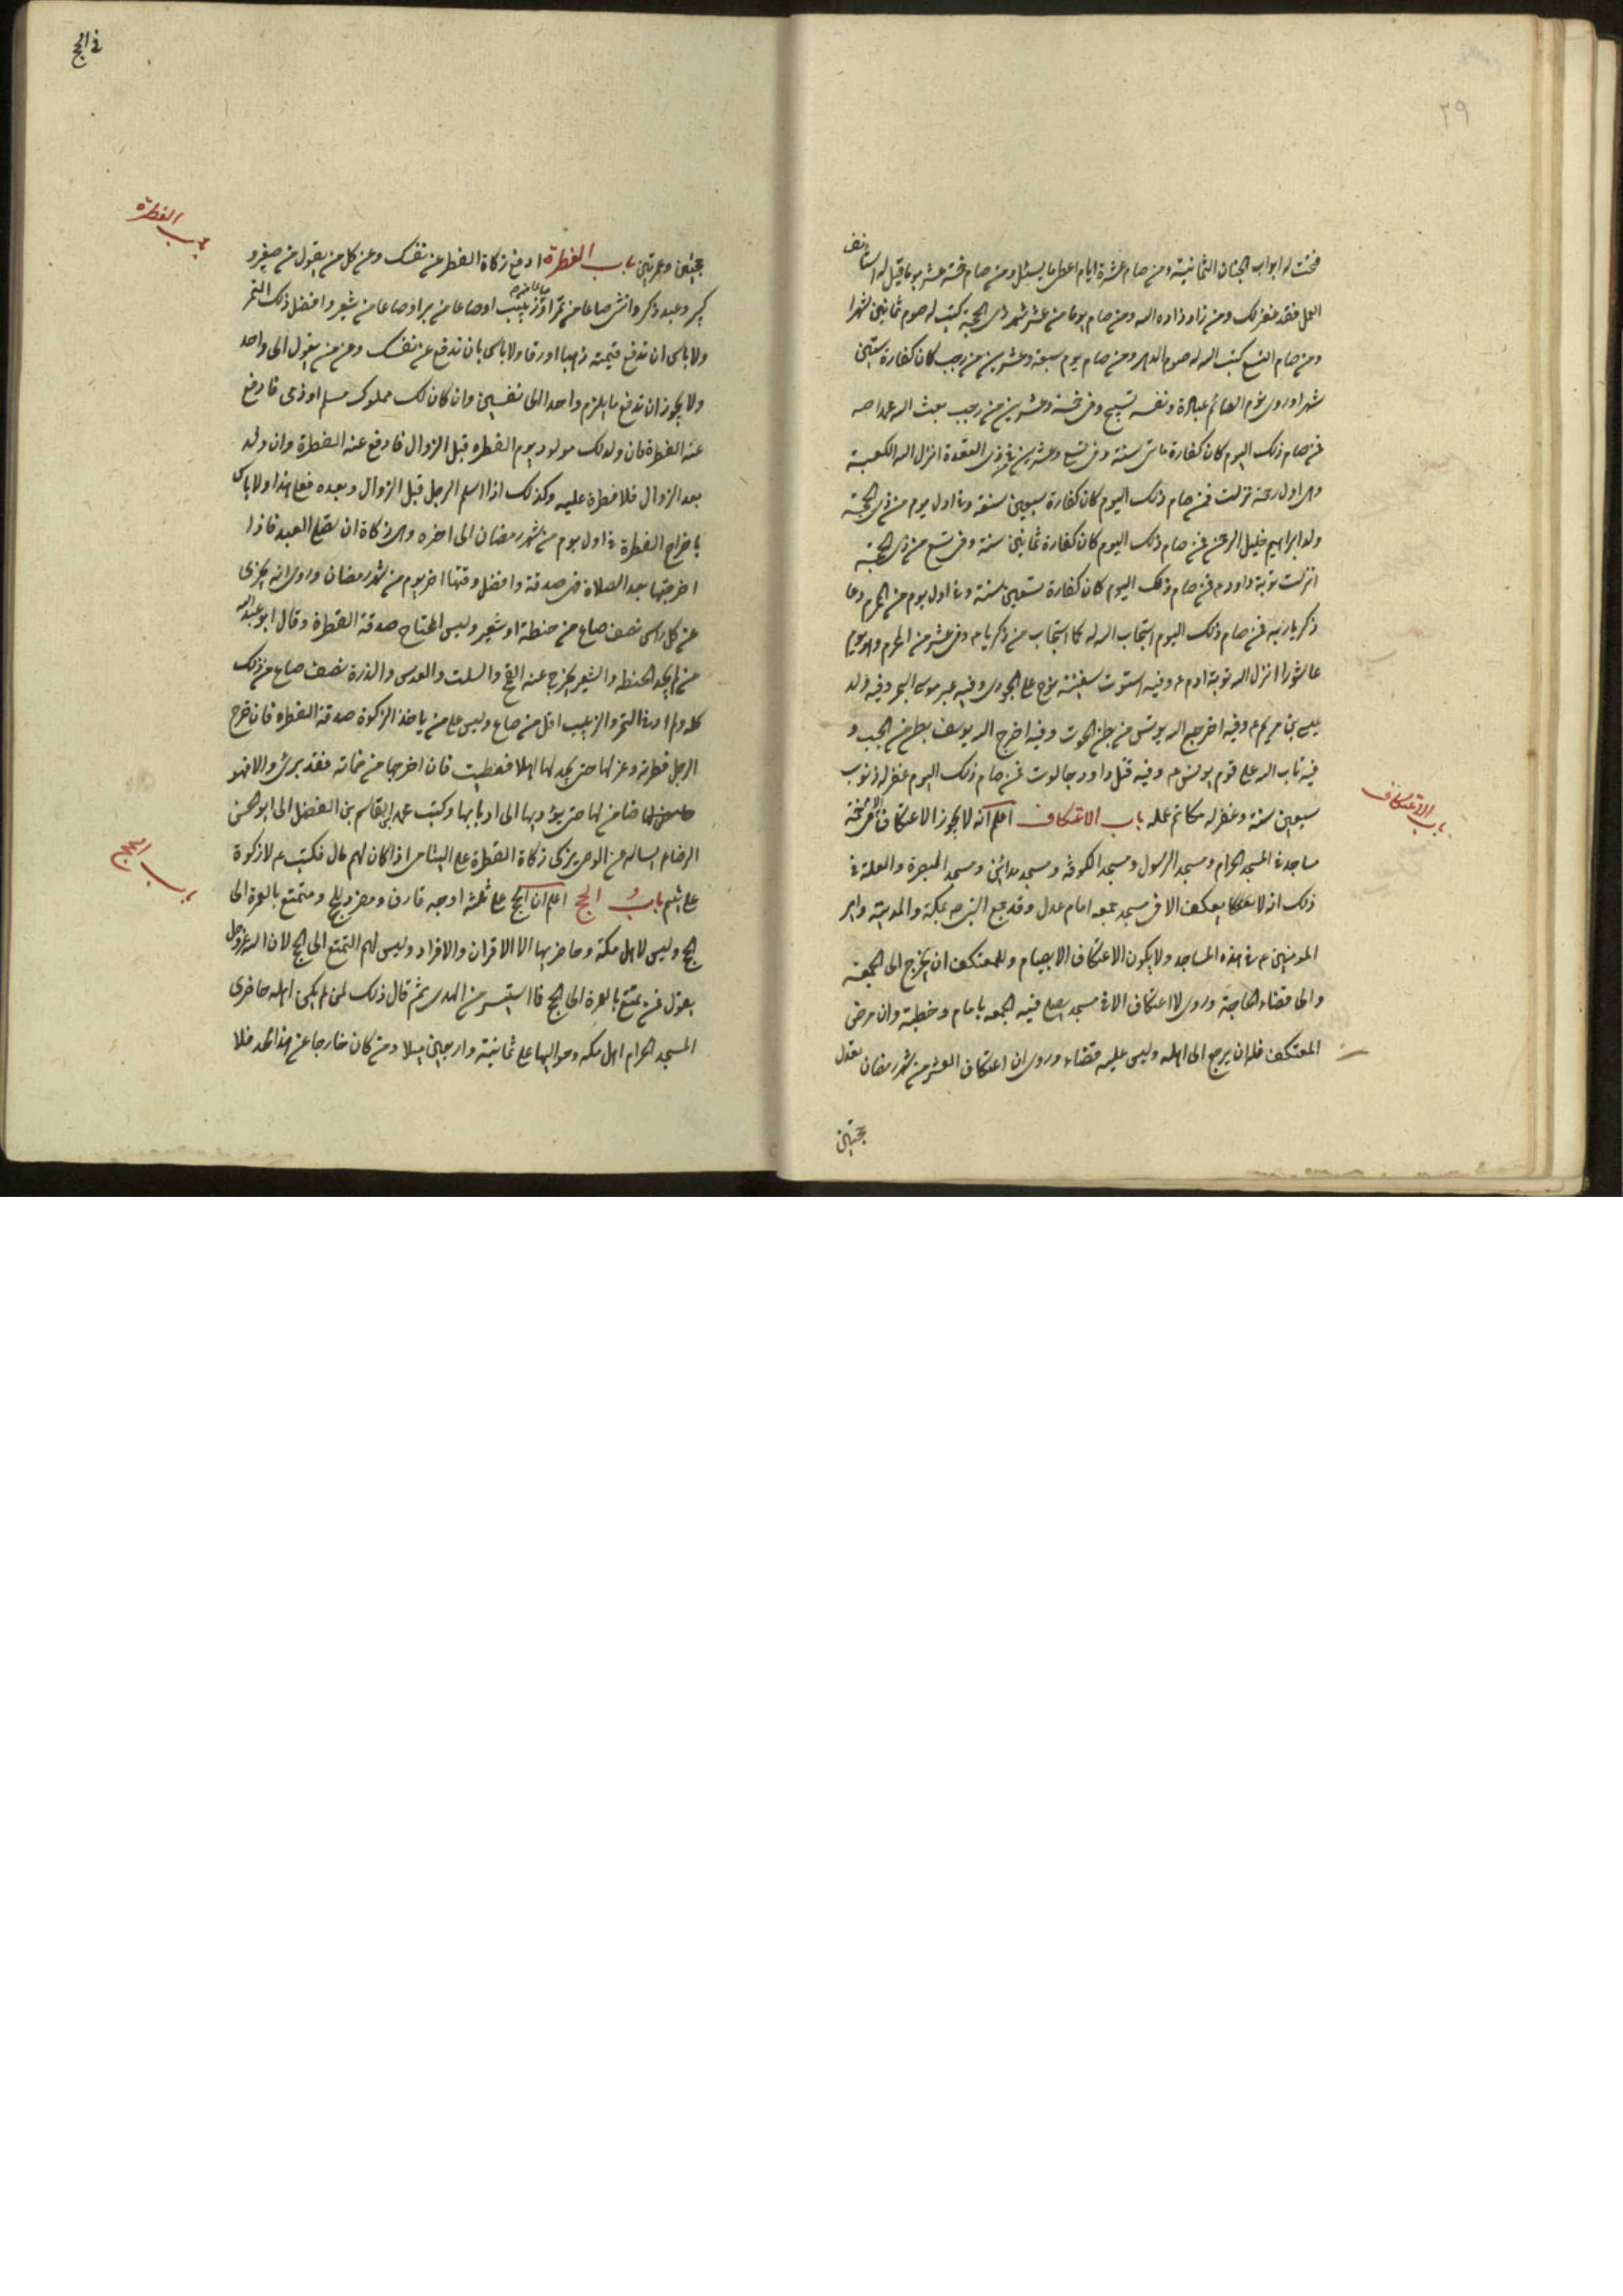 ٢٩
فتحت له ابواب الجنان الثمانية ومن صام عشرة ايام اعطى ما يسئل ومن صام خمسة عشر يوما قيل له استأنف
العمل فقد غفر لك ومن زاد زاده الله ومن صام يوما من عشر شهر ذى الحجة كتب له صوم ثمانين شهرا
ومن صام التسع كتب الله له صوم الدهر ومن صام يوم سبعة وعشرين من رجب كان كفارة ستين
شهرا وروى نوم الصائم عبادة ونفسه تسبيح وفى خمسة وعشرين من رجب بعث الله محمدا صه
فمن صام ذلك اليوم كان كفارة ماتى سنة وفى تسع وعشرين من ذى القعدة انزل الله الكعبة
وهى اول رحمة نزلت فمن صام ذلك اليوم كان كفارة سبعين سنة وفى اول يوم من ذى الحجة
ولد ابراهيم خليل الرحمن فمن صام ذلك اليوم كان كفارة ثمانين سنة وفى تسع من ذى الحجة
انزلت توبة داود ع فمن صام ذلك اليوم كان كفارة تسعين سنة وفى اول يوم من المحرم دعا
ذكريا ربه فمن صام ذلك اليوم استجاب الله له كما استجاب من ذكريا ع وفى عشر من المحرم وهو يوم
عاشورا انزل الله توبة ادم ع وفيه استوت سفينة نوح على الجودى وفيه عبر موسى البحر وفيه ولد
عيسى بن مريم ع وفيه اخرج الله يونس من بطن الحوت وفيه اخرج الله يوسف من بطن الجب و
فيه تاب الله على قوم يونس ع وفيه قتل داود جالوت فمن صام ذلك اليوم غفر له ذنوب
سبعين سنة وغفر له مكاتم عمله باب الاعتكاف اعلم انه لا يجوز الاعتكاف الا فى خمسة
باب الاعتكاف
مساجد فى المسجد الحرام ومسجد الرسول ومسجد الكوفة ومسجد مدائن ومسجد البصرة والعلة فى
ذلك انه لا يعتكف الا فى مسجد جمعه امام عدل وقد جمع النبى صه بمكة والمدينة وامير
المومنين ع فى هذه المساجد ولا يكون الاعتكاف الا بصيام وللمعتكف ان يخرج الى الجمعة
والى قضاء الحاجة وروى لا اعتكاف الا فى مسجد يصلى فيه الجمعه بامام وخطبة وان مرض
المعتكف فله ان يرجع الى اهله وليس عليه قضاء وروى ان اعتكاف العشر من شهر رمضان يعدل
حجتين
فى الحج
باب الفطرة
حجتين وعمرتين باب الفطرة ادفع زكاة الفطر عن نفسك وعن كل من يعول من صغير و
كبير وعبد ذكر وانثى صاعا من تمر او زبيب اوصاعا من بر اوصاعا من شعير وافضل ذلك التمر
ولا باس ان تدفع قيمته ذهبا اورقا ولا باس بان تدفع عن نفسك وعن من يعول الى واحد
ولا يجوز ان تدفع ما يلزم واحد الى نفسين وان كان لك مملوك مسلم او ذمى فادفع
عنه الفطرة فان ولد لك مولود يوم الفطره قبل الزوال فادفع عنه الفطرة وان ولد
بعد الزوال فلا فطرة عليه وكذلك اذا اسلم الرجل قبل الزوال وبعده فعلى هذا ولا باس
باخراج الفطرة فى اول يوم من شهر رمضان الى اخره وهى زكاة ان يصلى العيد فاذا
اخرجتها بعد الصلاة فهى صدقة وافضل وقتها اخر يوم من شهر رمضان وروى انه يجزى
عن كل راس نصف صاع من حنطة او شعير وليس المحتاج صدقة الفطرة وقال ابو عبد الله
من لم يجد الحنطة والشعير يخرج عنه القمح والسلت والعدس والذرة نصف صاع من ذلك
كله ولم ار فى التمر والزبيب اقل من صاع وليس على من ياخذ الزكوة صدقة الفطره فان خرج
الرجل فطرته وعزلها حتى يجد لها اهلا فعطبت فان اخرجها من ضمانه فقد برى والا فهو
ضامن لها حتى يؤديها الى اربابها وكتب محمد بن القاسم بن الفضل الى ابو الحسن
باب الحج
الرضا ع يساله عن الوصى يزكى زكاة الفطرة على اليتامى اذا كان لهم مال فكتب ع لا زكوة
على يتيم باب الحج اعلم ان الحج على ثلثه اوجه قارن ومفرد للحج ومتمتع بالعمرة الى
الحج وليس لاهل مكة وحاضريها الا الاقران والافراد وليس لهم التمتع الى الحج لان الله عز وجل
يقول فمن تمتع بالعمرة الى الحج فما استيسر من الهدى ثم قال ذلك لمن لم يكن اهله حاضرى
المسجد الحرام اهل مكه وحواليها على ثمانية واربعين ميلا ومن كان خارجا عن هذا الحد فلا